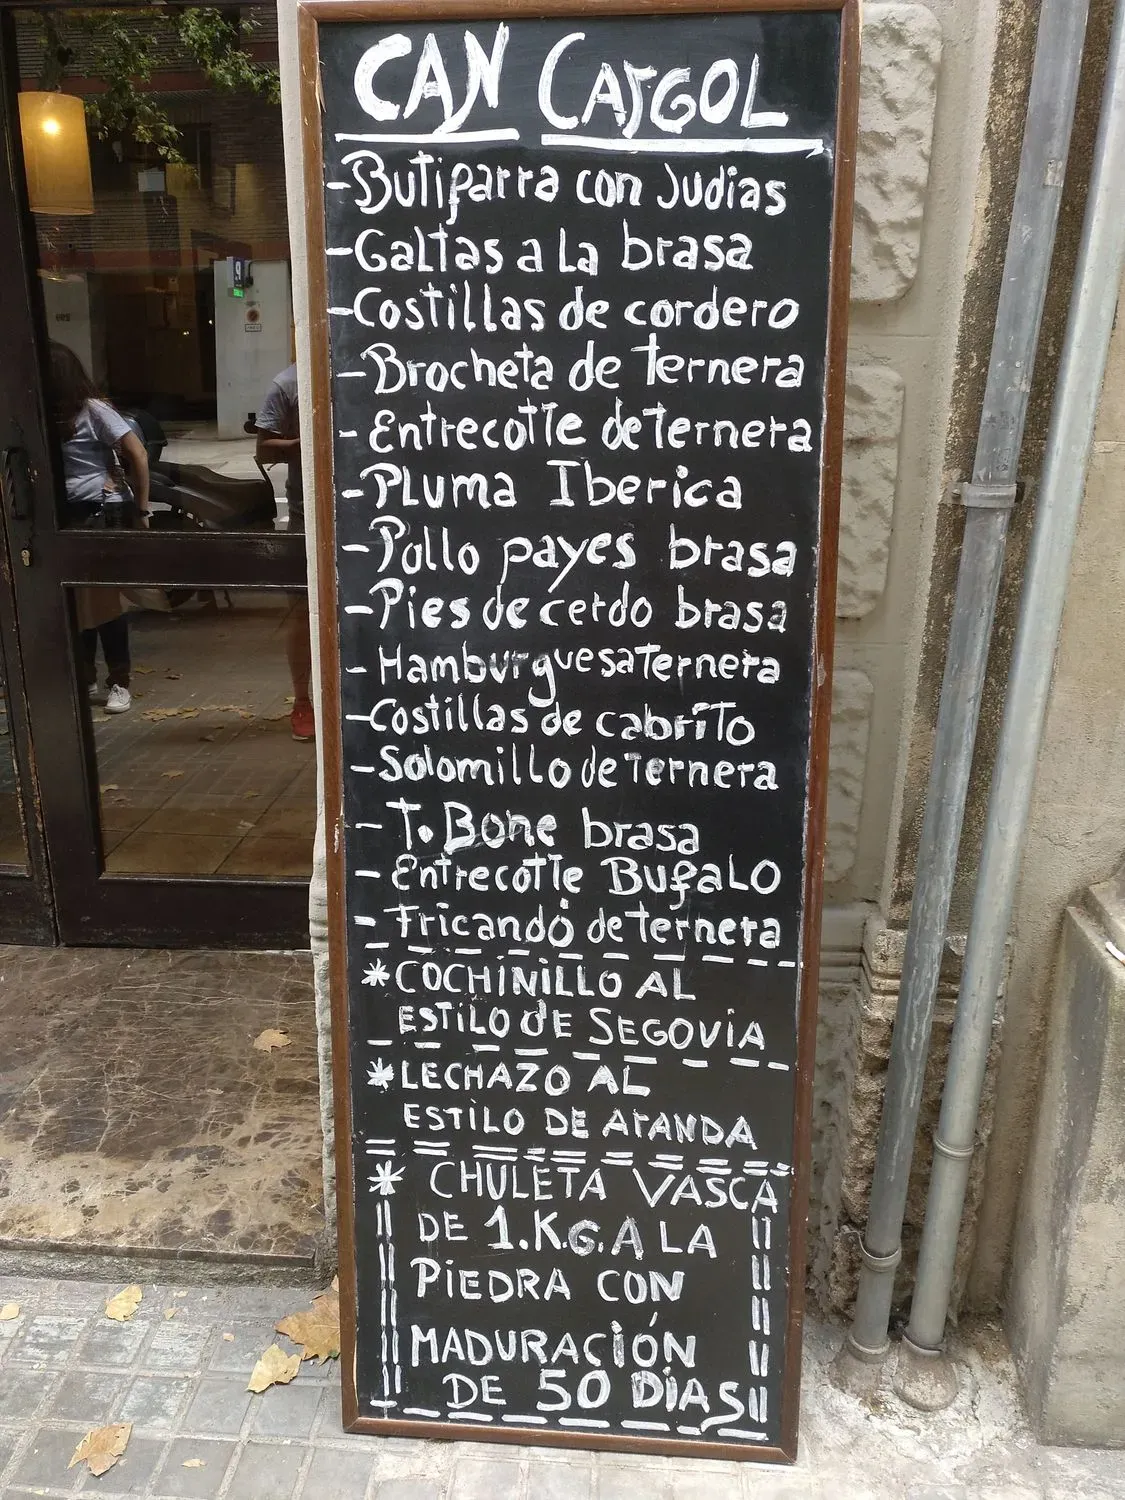 CAN CARGOL
-Butifarra con Judias
-Galtas a la brasa
-Costillas de cordero
-Brocheta de ternera
-Entrecotte de ternera
-Pluma Iberica
-Pollo payes brasa
-Pies de cerdo brasa
-Hamburguesa Ternera
-Costillas de cabrito
-Solomillo de ternera
-T. Bone brasa
-Entrecotte Bufalo
-Fricandó de ternera
*COCHINILLO AL
ESTILO DE SEGOVIA
*LECHAZO AL
ESTILO DE ARANDA
* CHULETA VASCA
DE 1.K.G. A LA
PIEDRA CON
MADURACIÓN
DE 50 DIAS